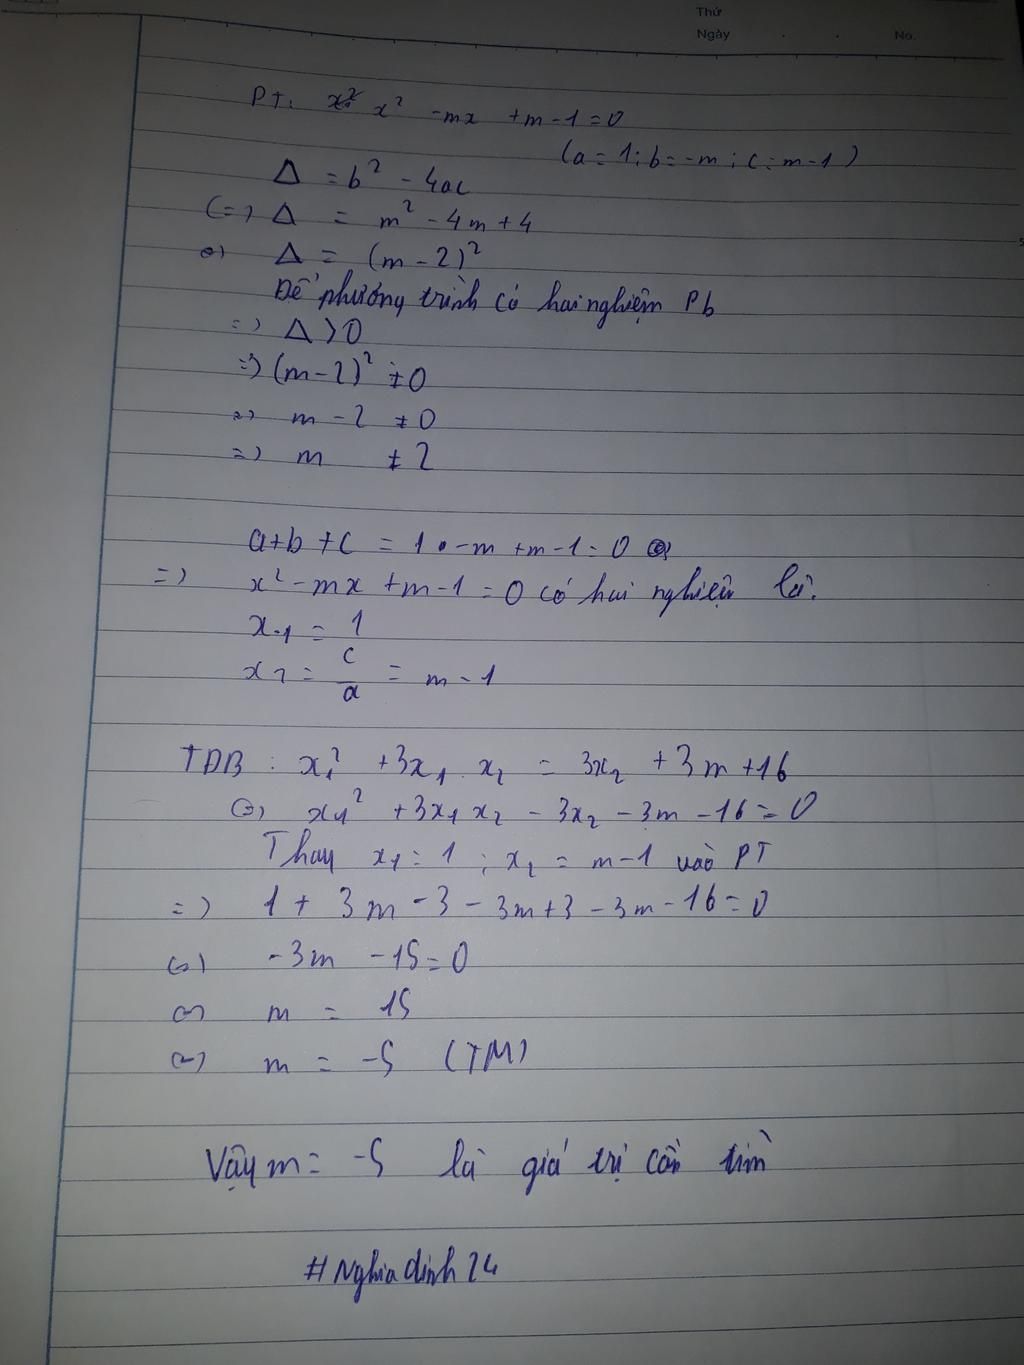 Thứ
Ngày . . No.
PT: x² - mx + m - 1 = 0
(a = 1; b = -m; c = m - 1)
Δ = b² - 4ac
(=) Δ = m² - 4m + 4
(=) Δ = (m - 2)²
Để phương trình có hai nghiệm Pb
=) Δ > 0
=) (m - 2)² ≠ 0
=) m - 2 ≠ 0
=) m ≠ 2
a + b + c = 1 - m + m - 1 = 0
=) x² - mx + m - 1 = 0 có hai nghiệm là.
x₁ = 1
x₂ = c/a = m - 1
TDB: x₁² + 3x₁ . x₂ = 3x₂ + 3m + 16
(=) x₁² + 3x₁ x₂ - 3x₂ - 3m - 16 = 0
Thay x₁ = 1 ; x₂ = m - 1 vào PT
=) 1 + 3m - 3 - 3m + 3 - 3m - 16 = 0
(=) -3m - 15 = 0
(=) m = 15
(=) m = -5 (TM)
Vậy m = -5 là giá trị cần tìm
#Nghiadinh24